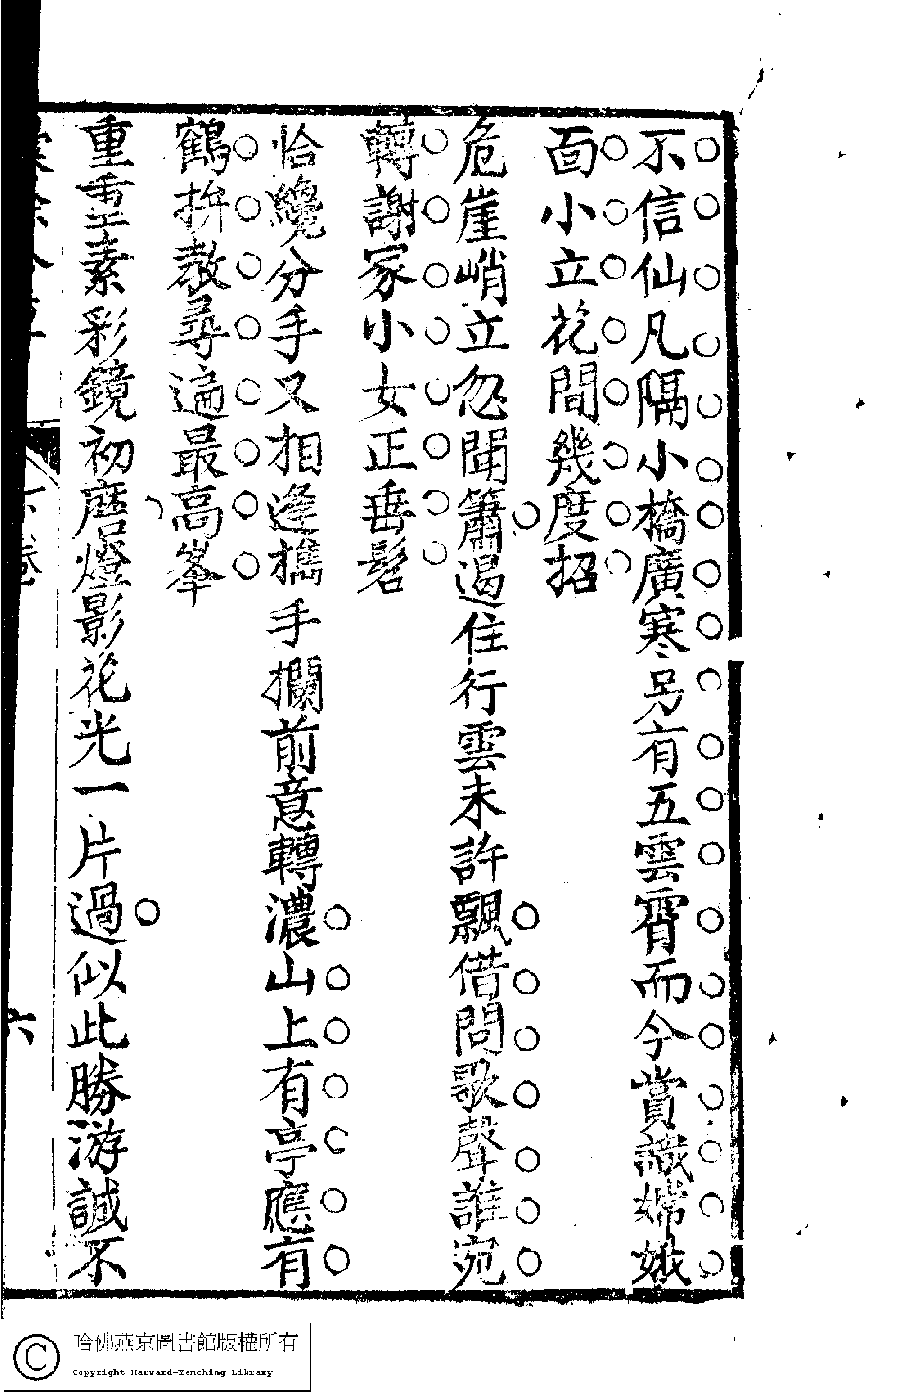 不信仙凡隔小橋廣寒另有五雲霄而今賞識嫦娥
面小立花間幾度招
危崖峭立忽聞簫遏住行雲未許飄借問歌聲誰宛
轉謝家小女正垂髫
恰纔分手又相逢攜手攔前意轉濃山上有亭應有
鶴拚教尋遍最高峯
重重素彩鏡初磨燈影花光一片過似此勝游誠不
卷
六
哈佛燕京圖書館版權所有
Copyright Harvard-Yenching Library